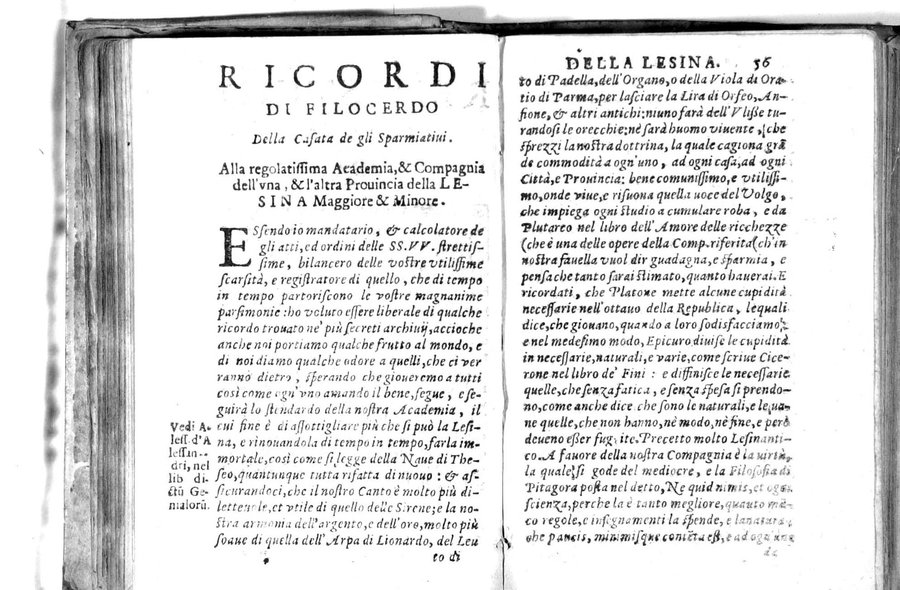 RICORDI
DI FILOCERDO
Della Casata de gli Sparmiatiui.
Alla regolatissima Academia, & Compagnia
dell'vna, & l'altra Prouincia della LE-
SINA Maggiore & Minore.
ESsendo io mandatario, & calcolatore de
gli atti, ed ordini delle SS. VV. strettis-
sime, bilancero delle vostre vtilissime
scarsità, e registratore di quello, che di tempo
in tempo partoriscono le vostre magnanime
parsimonie: ho voluto essere liberale di qualche
ricordo trouato ne' più secreti archiuij, accioche
anche noi portiamo qualche frutto al mondo, e
di noi diamo qualche odore a quelli, che ci ver
ranno dietro, sperando che gioueremo a tutti
così come ogn'vno amando il bene, segue, e se-
guirà lo stendardo della nostra Academia, il
cui fine è di assottigliare più che si può la Lesi-
na, e rinouandola di tempo in tempo, farla im-
mortale, così come si legge della Naue di The-
seo, quantunque tutta rifatta di nuouo: & as-
sicurandoci, che il nostro Canto è molto più di-
letteuole, et vtile di quello delle Sirene; e la no-
stra armonia dell'argento, e dell'oro, molto più
soaue di quella dell'Arpa di Lionardo, del Leu
to di
Vedi A-
less. d'A
lessan-
dri, nel
lib di-
ctū Ge-
nialorū.
DELLA LESINA. 56
to di Padella, dell'Organo, o della Viola di Ora-
tio di Parma, per lasciare la Lira di Orfeo, An-
fione, & altri antichi: niuno farà dell'Vlisse tu-
randosi le orecchie: nè sarà huomo viuente, che
sprezzi la nostra dottrina, la quale cagiona grā
de commodità a ogn'uno, ad ogni casa, ad ogni
Città, e Prouincia: bene comunissimo, e vtilissi-
mo, onde viue, e risuona quella uoce del Volgo,
che impiega ogni studio a cumulare roba, e da
Plutarco nel libro dell'Amore delle ricchezze
(che è una delle opere della Comp. riferita (ch'in
nostra fauella vuol dir guadagna, e sparmia, e
pensa che tanto sarai stimato, quanto hauerai. E
ricordati, che Platone mette alcune cupidità
necessarie nell'ottauo della Republica, lequali
dice, che giouano, quando a loro sodisfacciamo;
e nel medesimo modo, Epicuro diuise le cupidità
in necessarie, naturali, e varie, come scriue Cice-
rone nel libro de' Fini: e diffinisce le necessarie
quelle, che senza fatica, e senza spesa si prendo-
no, come anche dice che sono le naturali, e le ua-
ne quelle, che non hanno, nè modo, nè fine, e però
deueno esser fuggite. Precetto molto Lesinanti-
co. A fauore della nostra Compagnia è la uirtù,
la quale si gode del mediocre, e la Filosofia di
Pitagora posta nel detto, Ne quid nimis, et ogni
scienza, perche la è tanto megliore, quanto mā-
co regole, e insegnamenti la spende, e la natura,
che paucis, minimisque contēta est, e ad ogn